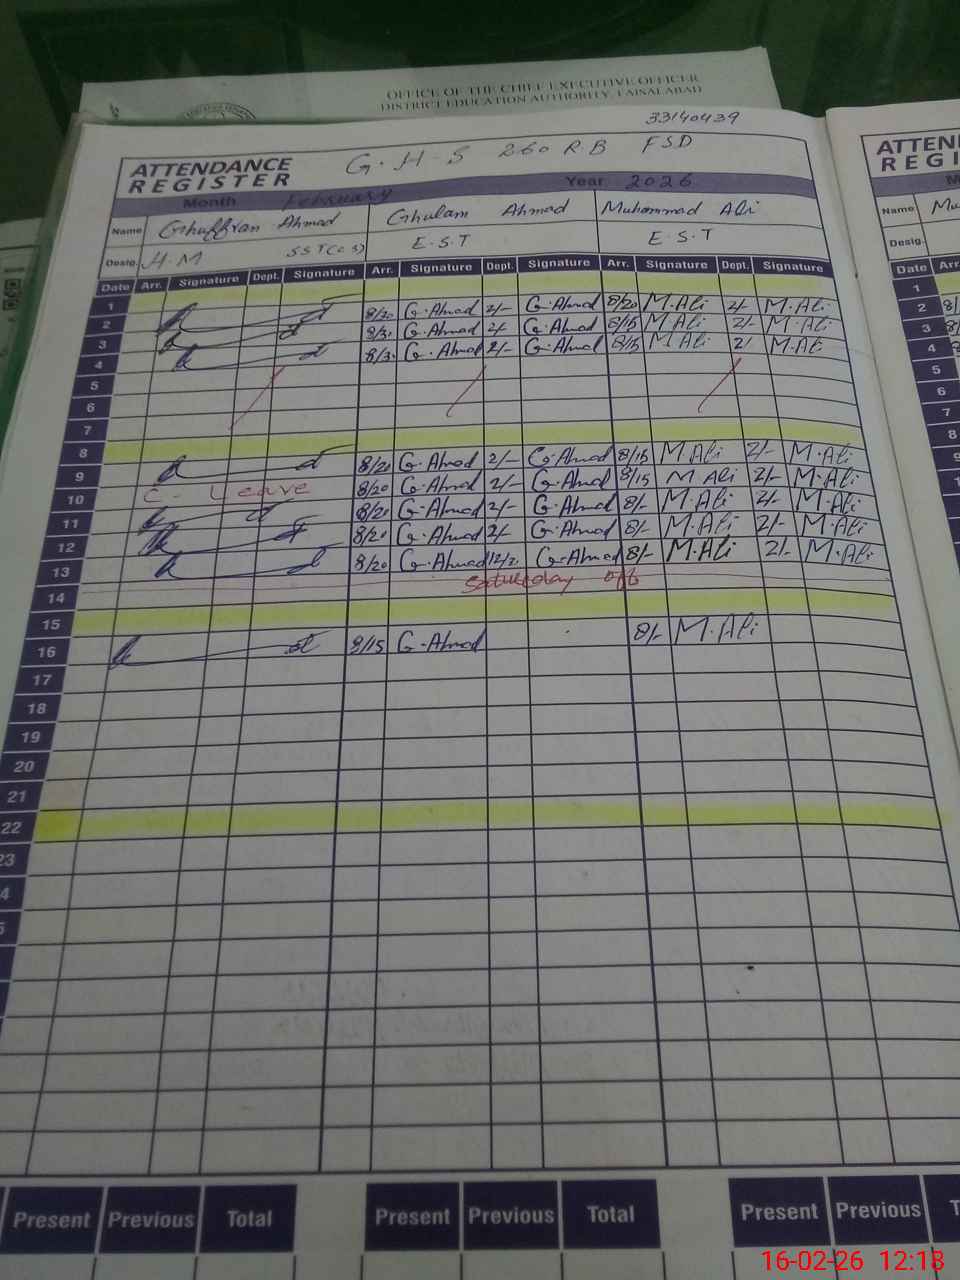 OFFICE OF THE CHIEF EXECUTIVE OFFICER
DISTRICT EDUCATION AUTHORITY, FAISALABAD
33140439
ATTENDANCE REGISTER G.H.S 260 R.B FSD
Month February Year 2026
Name Ghuffran Ahmad Ghulam Ahmad Muhammad Ali
Desig. H.M SST(C.S) E.S.T E.S.T
Date Arr. Signature Dept. Signature Arr. Signature Dept. Signature Arr. Signature Dept. Signature
1
2 8/20 G.Ahmad 2/- G.Ahmad 8/20 M.Ali 2/- M.Ali
3 G.Ahmad 2/- G.Ahmad 8/15 M Ali 2/- M.Ali
4 G.Ahmad 2/- G.Ahmad 8/15 M Ali 2/ M.Ali
5
6
7
8
9 8/20 G.Ahmad 2/- G.Ahmad 8/15 M.Ali 2/- M.Ali
10 C - Leave 8/20 G.Ahmad 2/- G.Ahmad 8/15 M Ali 2/- M.Ali
11 8/20 G.Ahmad 2/- G.Ahmad 8/- M.Ali 2/- M.Ali
12 8/20 G.Ahmad 2/- G.Ahmad 8/- M.Ali 2/- M.Ali
13 8/20 G.Ahmad 12/2 G.Ahmad 8/- M.Ali 2/- M.Ali
14 Saturday off
15
16 8/15 G.Ahmad 8/- M.Ali
17
18
19
20
21
22
23
4
5
Present Previous Total Present Previous Total Present Previous T
ATTEN
REGI
M
Name Mu
Desig.
Date Arr
1
2 8/
3 8/
4
5
6
7
8
16-02-26 12:18